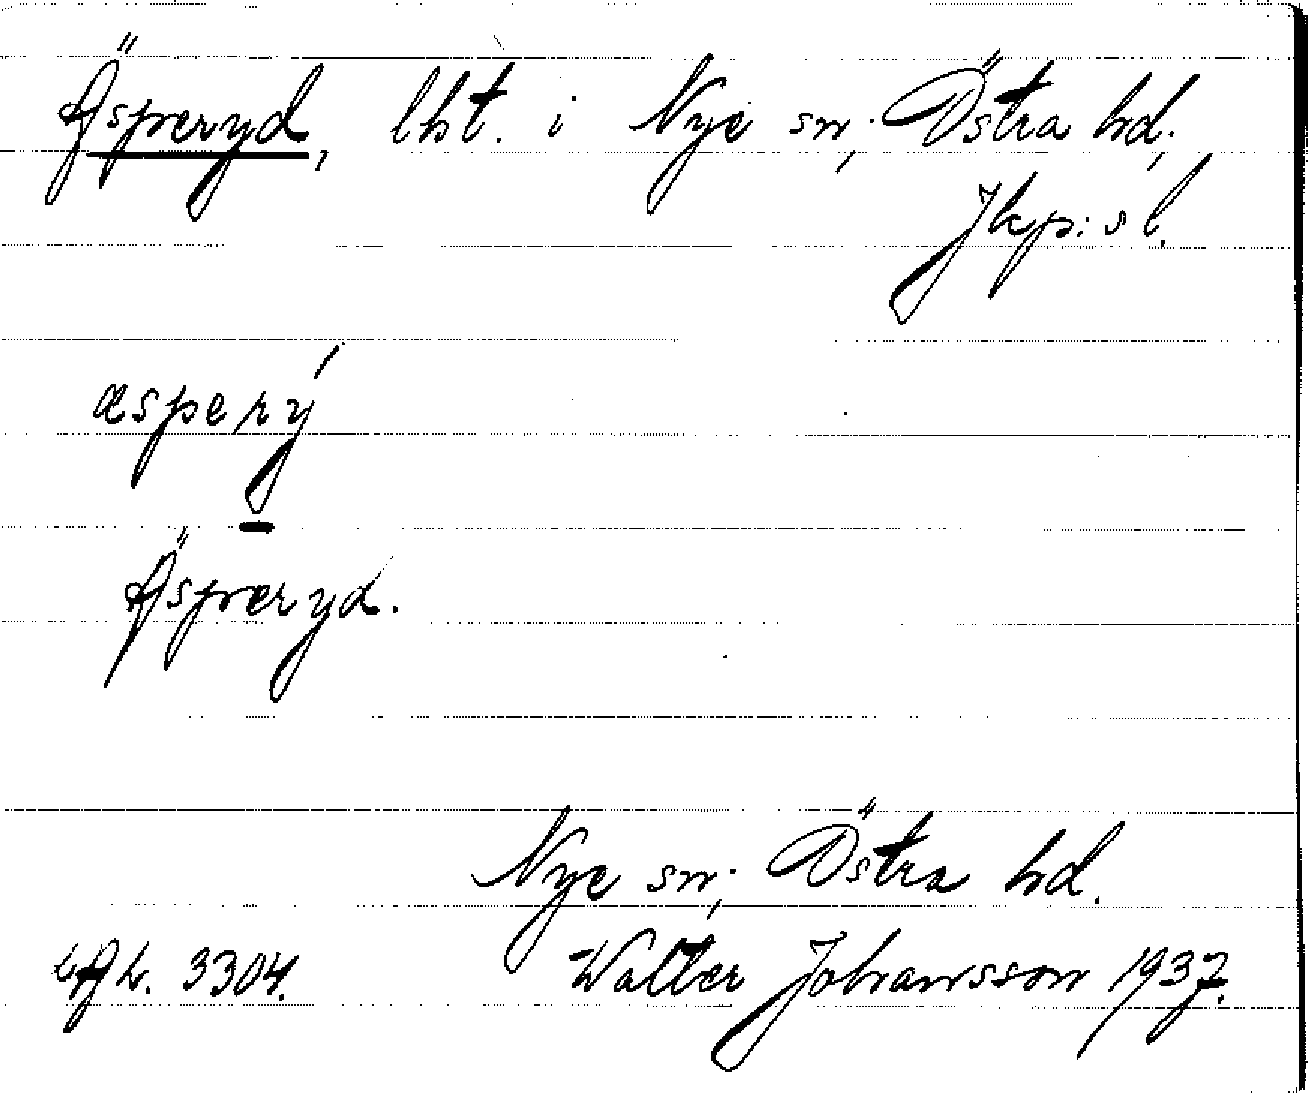 Äsperyd, lht. i Nye sn; Östra hd;
Jkp:s l.
æsperý
Äsperyd.
Nye sn; Östra hd.
3304. Walter Johansson 1937.